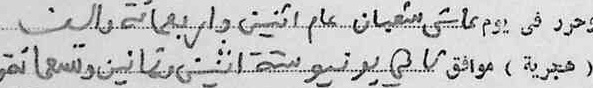 وحرر في يوم عاشر شعبان عام اثنين واربعمائة والف
( هجرية ) موافق ثاني يونيو سنة اثنين وثمانين وتسعمائة